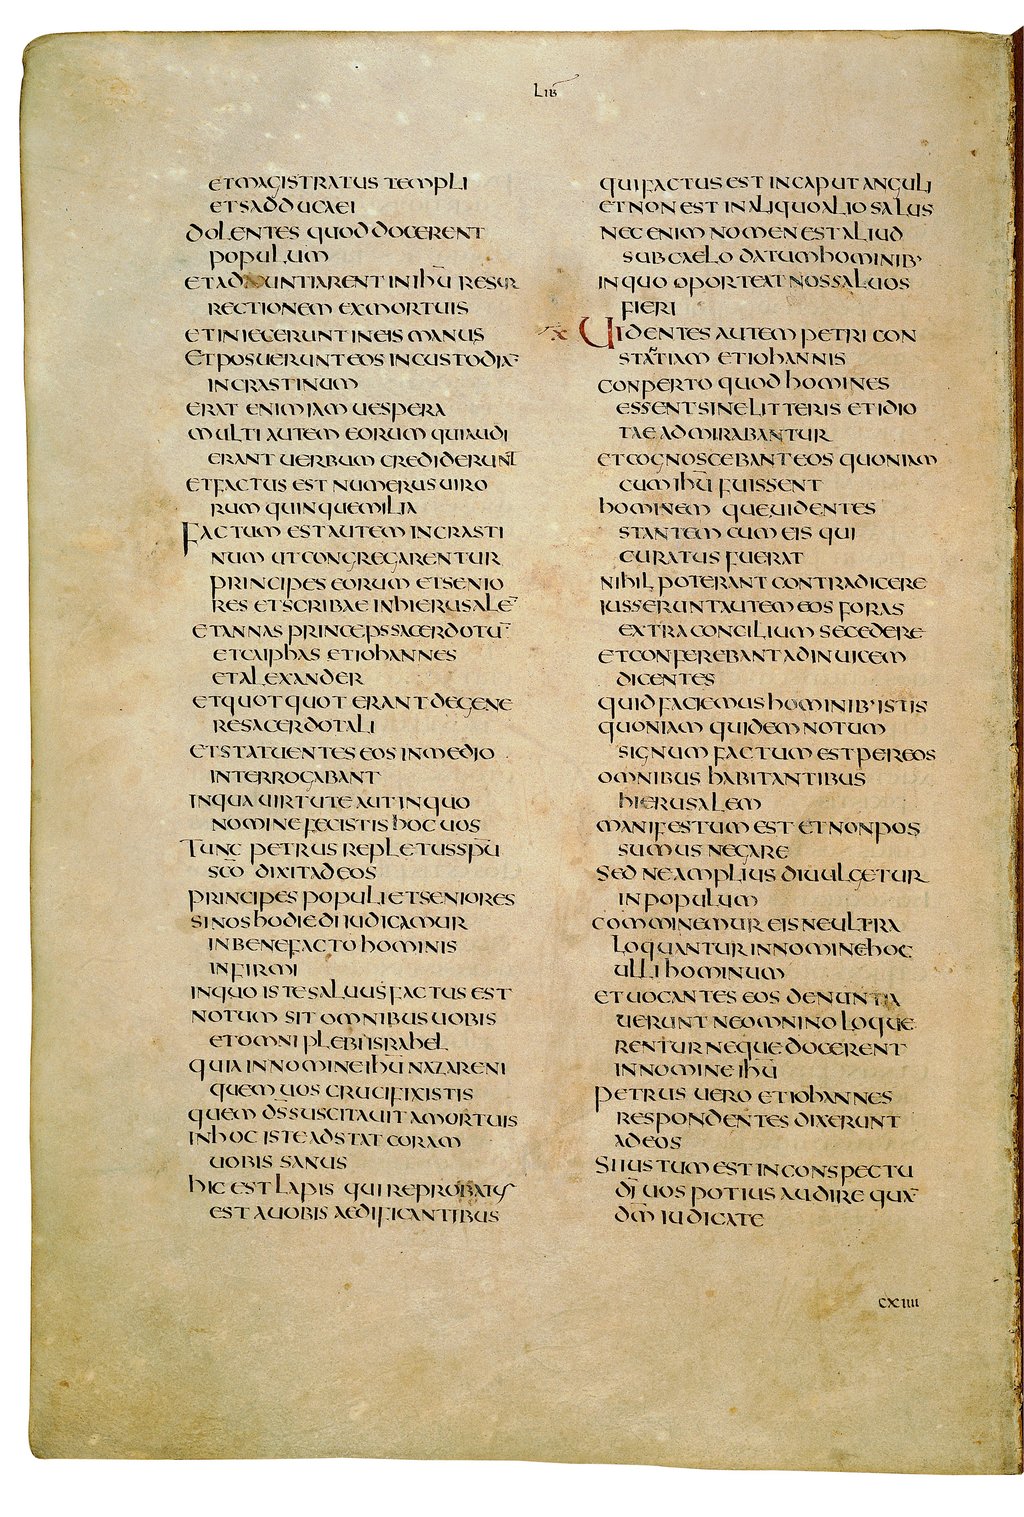 LIB
ET MAGISTRATUS TEMPLI
ET SADDUCAEI
DOLENTES QUOD DOCERENT
POPULUM
ET ADNUNTIARENT IN IHŪ RESUR
RECTIONEM EX MORTUIS
ET INIECERUNT IN EIS MANUS
ET POSUERUNT EOS IN CUSTODIĀ
IN CRASTINUM
ERAT ENIM IAM UESPERA
MULTI AUTEM EORUM QUI AUDI
ERANT UERBUM CREDIDERUNT
ET FACTUS EST NUMERUS UIRO
RUM QUINQUE MILIA
FACTUM EST AUTEM IN CRASTI
NUM UT CONGREGARENTUR
PRINCIPES EORUM ET SENIO
RES ET SCRIBAE IN HIERUSALĒ
ET ANNAS PRINCEPS SACERDOTŪ
ET CAIPHAS ET IOHANNES
ET ALEXANDER
ET QUOTQUOT ERANT DE GENE
RE SACERDOTALI
ET STATUENTES EOS IN MEDIO
INTERROGABANT
IN QUA UIRTUTE AUT IN QUO
NOMINE FECISTIS HOC UOS
TUNC PETRUS REPLETUS SPŪ
SCŌ DIXIT AD EOS
PRINCIPES POPULI ET SENIORES
SI NOS HODIE DIIUDICAMUR
IN BENEFACTO HOMINIS
INFIRMI
IN QUO ISTE SALUUS FACTUS EST
NOTUM SIT OMNIBUS UOBIS
ET OMNI PLEBI ISRAHEL
QUIA IN NOMINE IHŪ NAZARENI
QUEM UOS CRUCIFIXISTIS
QUEM DS̄ SUSCITAUIT A MORTUIS
IN HOC ISTE ADSTAT CORAM
UOBIS SANUS
HIC EST LAPIS QUI REPROBATUS
EST A UOBIS AEDIFICANTIBUS
QUI FACTUS EST IN CAPUT ANGULI
ET NON EST IN ALIQUO ALIO SALUS
NEC ENIM NOMEN EST ALIUD
SUB CAELO DATUM HOMINIB'
IN QUO OPORTEAT NOS SALUOS
FIERI
X UIDENTES AUTEM PETRI CON
STANTIAM ET IOHANNIS
CONPERTO QUOD HOMINES
ESSENT SINE LITTERIS ET IDIO
TAE ADMIRABANTUR
ET COGNOSCEBANT EOS QUONIAM
CUM IHŪ FUISSENT
HOMINEM QUE UIDENTES
STANTEM CUM EIS QUI
CURATUS FUERAT
NIHIL POTERANT CONTRADICERE
IUSSERUNT AUTEM EOS FORAS
EXTRA CONCILIUM SECEDERE
ET CONFEREBANT AD INUICEM
DICENTES
QUID FACIEMUS HOMINIB' ISTIS
QUONIAM QUIDEM NOTUM
SIGNUM FACTUM EST PER EOS
OMNIBUS HABITANTIBUS
HIERUSALEM
MANIFESTUM EST ET NON POS
SUMUS NEGARE
SED NE AMPLIUS DIUULGETUR
IN POPULUM
COMMINEMUR EIS NE ULTRA
LOQUANTUR IN NOMINE HOC
ULLI HOMINUM
ET UOCANTES EOS DENUNTIA
UERUNT NE OMNINO LOQUE
RENTUR NEQUE DOCERENT
IN NOMINE IHŪ
PETRUS UERO ET IOHANNES
RESPONDENTES DIXERUNT
AD EOS
SI IUSTUM EST IN CONSPECTU
DĪ UOS POTIUS AUDIRE QUĀ
DM̄ IUDICATE
CXIIII